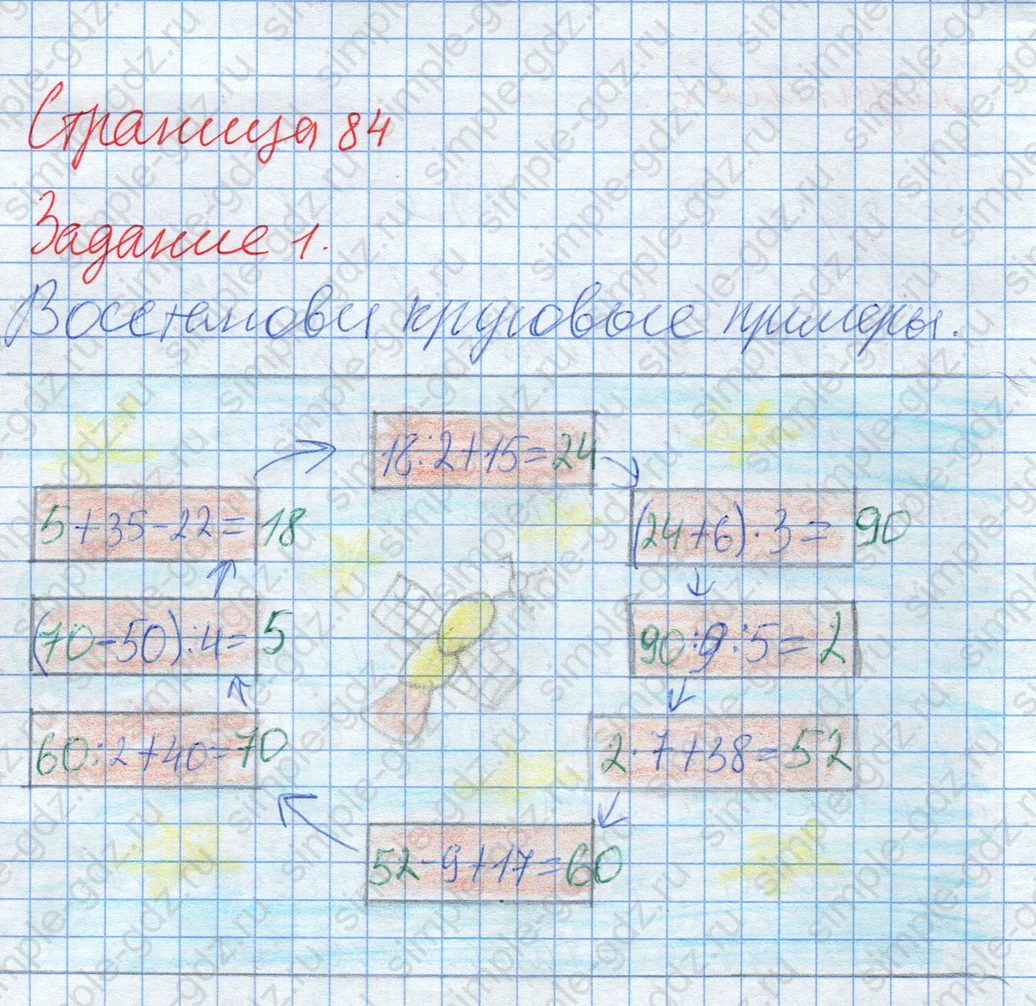 Страница 84
Задание 1.
Восстанови круговые примеры.
18:2+15=24
5+35-22=18
(24+6)·3=90
(70-50):4=5
90:9:5=2
60:2+40=70
2·7+38=52
52-9+17=60
simple-gdz.ru